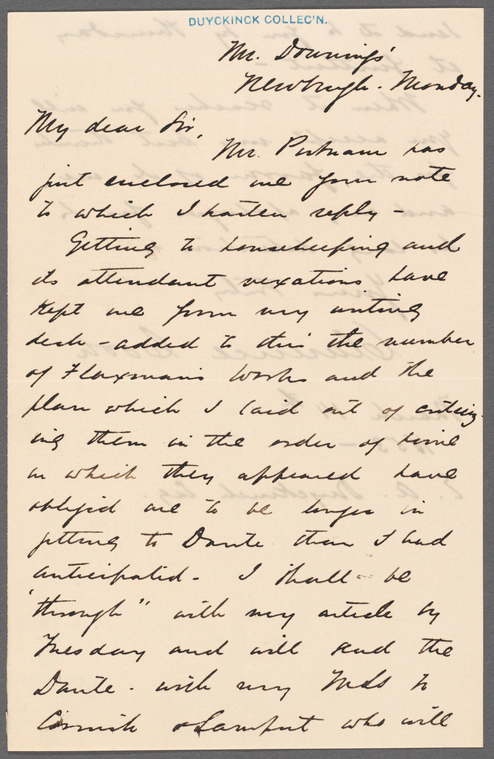 DUYCKINCK COLLEC'N.
Mr. Downing's
Newburgh. Monday.
My dear Sir,
Mr. Putnam has
just enclosed me your note
to which I hasten reply -
Getting to housekeeping and
its attendant vexations have
kept me from my writing
desk - added to this the number
of Flaxman's works and the
plan which I laid out of criticis-
ing them in the order of time
in which they appeared have
obliged me to be longer in
getting to Dante than I had
anticipated - I shall be
"through" with my article by
Tuesday and will send the
Dante - with my MSS to
Cornish & Lamport who will